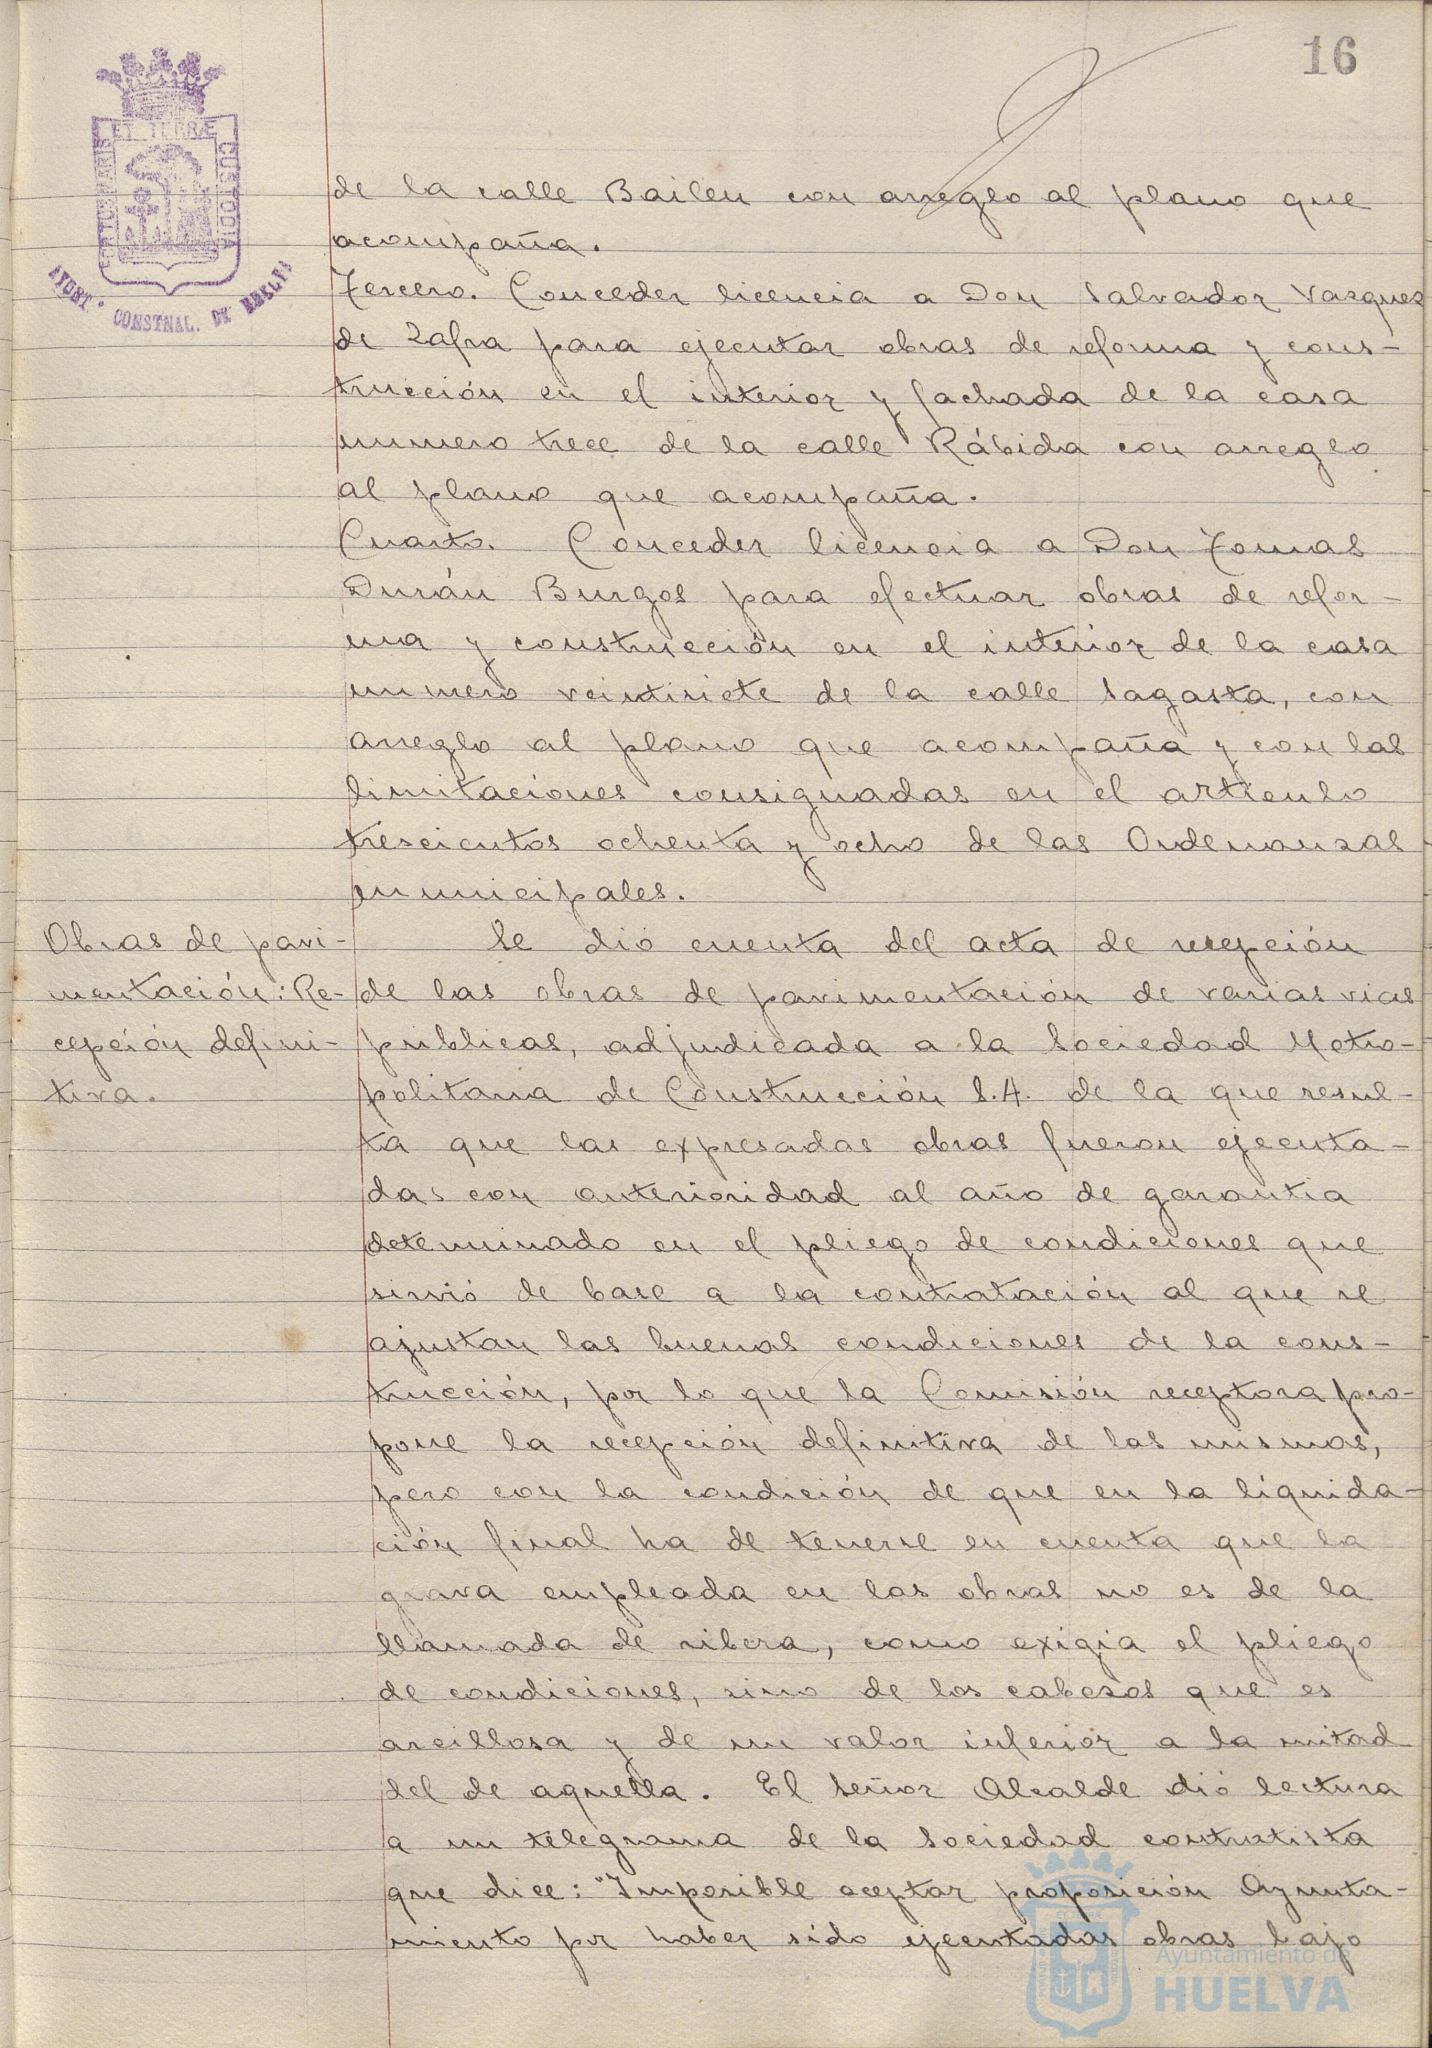 16
PORTUS MARIS ET TERRÆ CUSTODIA
AYUNT. CONSTNAL. DE HUELVA
de la calle Bailen con arreglo al plano que
acompaña.
Tercero. Conceder licencia a Don Salvador Vazquez
de Zafra para ejecutar obras de reforma y cons-
trucción en el interior y fachada de la casa
numero trece de la calle Rábida con arreglo
al plano que acompaña.
Cuarto. Conceder licencia a Don Tomas
Durán Burgos para efectuar obras de refor-
ma y construcción en el interior de la casa
numero veintisiete de la calle Sagasta, con
arreglo al plano que acompaña y con las
limitaciones consignadas en el articulo
trescientos ochenta y ocho de las Ordenanzas
municipales.
Obras de pavi-
mentación: Re-
cepción defini-
tiva.
Se dió cuenta del acta de recepción
de las obras de pavimentación de varias vias
públicas, adjudicada a la Sociedad Metro-
politana de Construcción S.A. de la que resul-
ta que las expresadas obras fueron ejecuta-
das con anterioridad al año de garantia
determinado en el pliego de condiciones que
sirvió de base a la contratación al que se
ajustan las buenas condiciones de la cons-
trucción, por lo que la Comisión receptora pro-
pone la recepción definitiva de las mismas,
pero con la condición de que en la liquida-
ción final ha de tenerse en cuenta que la
grava empleada en las obras no es de la
llamada de ribera, como exigia el pliego
de condiciones, sino de los cabezos que es
arcillosa y de un valor inferior a la mitad
del de aquella. El Señor Alcalde dió lectura
a un telegrama de la Sociedad contratista
que dice: "Imposible aceptar proposición Ayunta-
miento por haber sido ejecutadas obras bajo
Ayuntamiento de
HUELVA